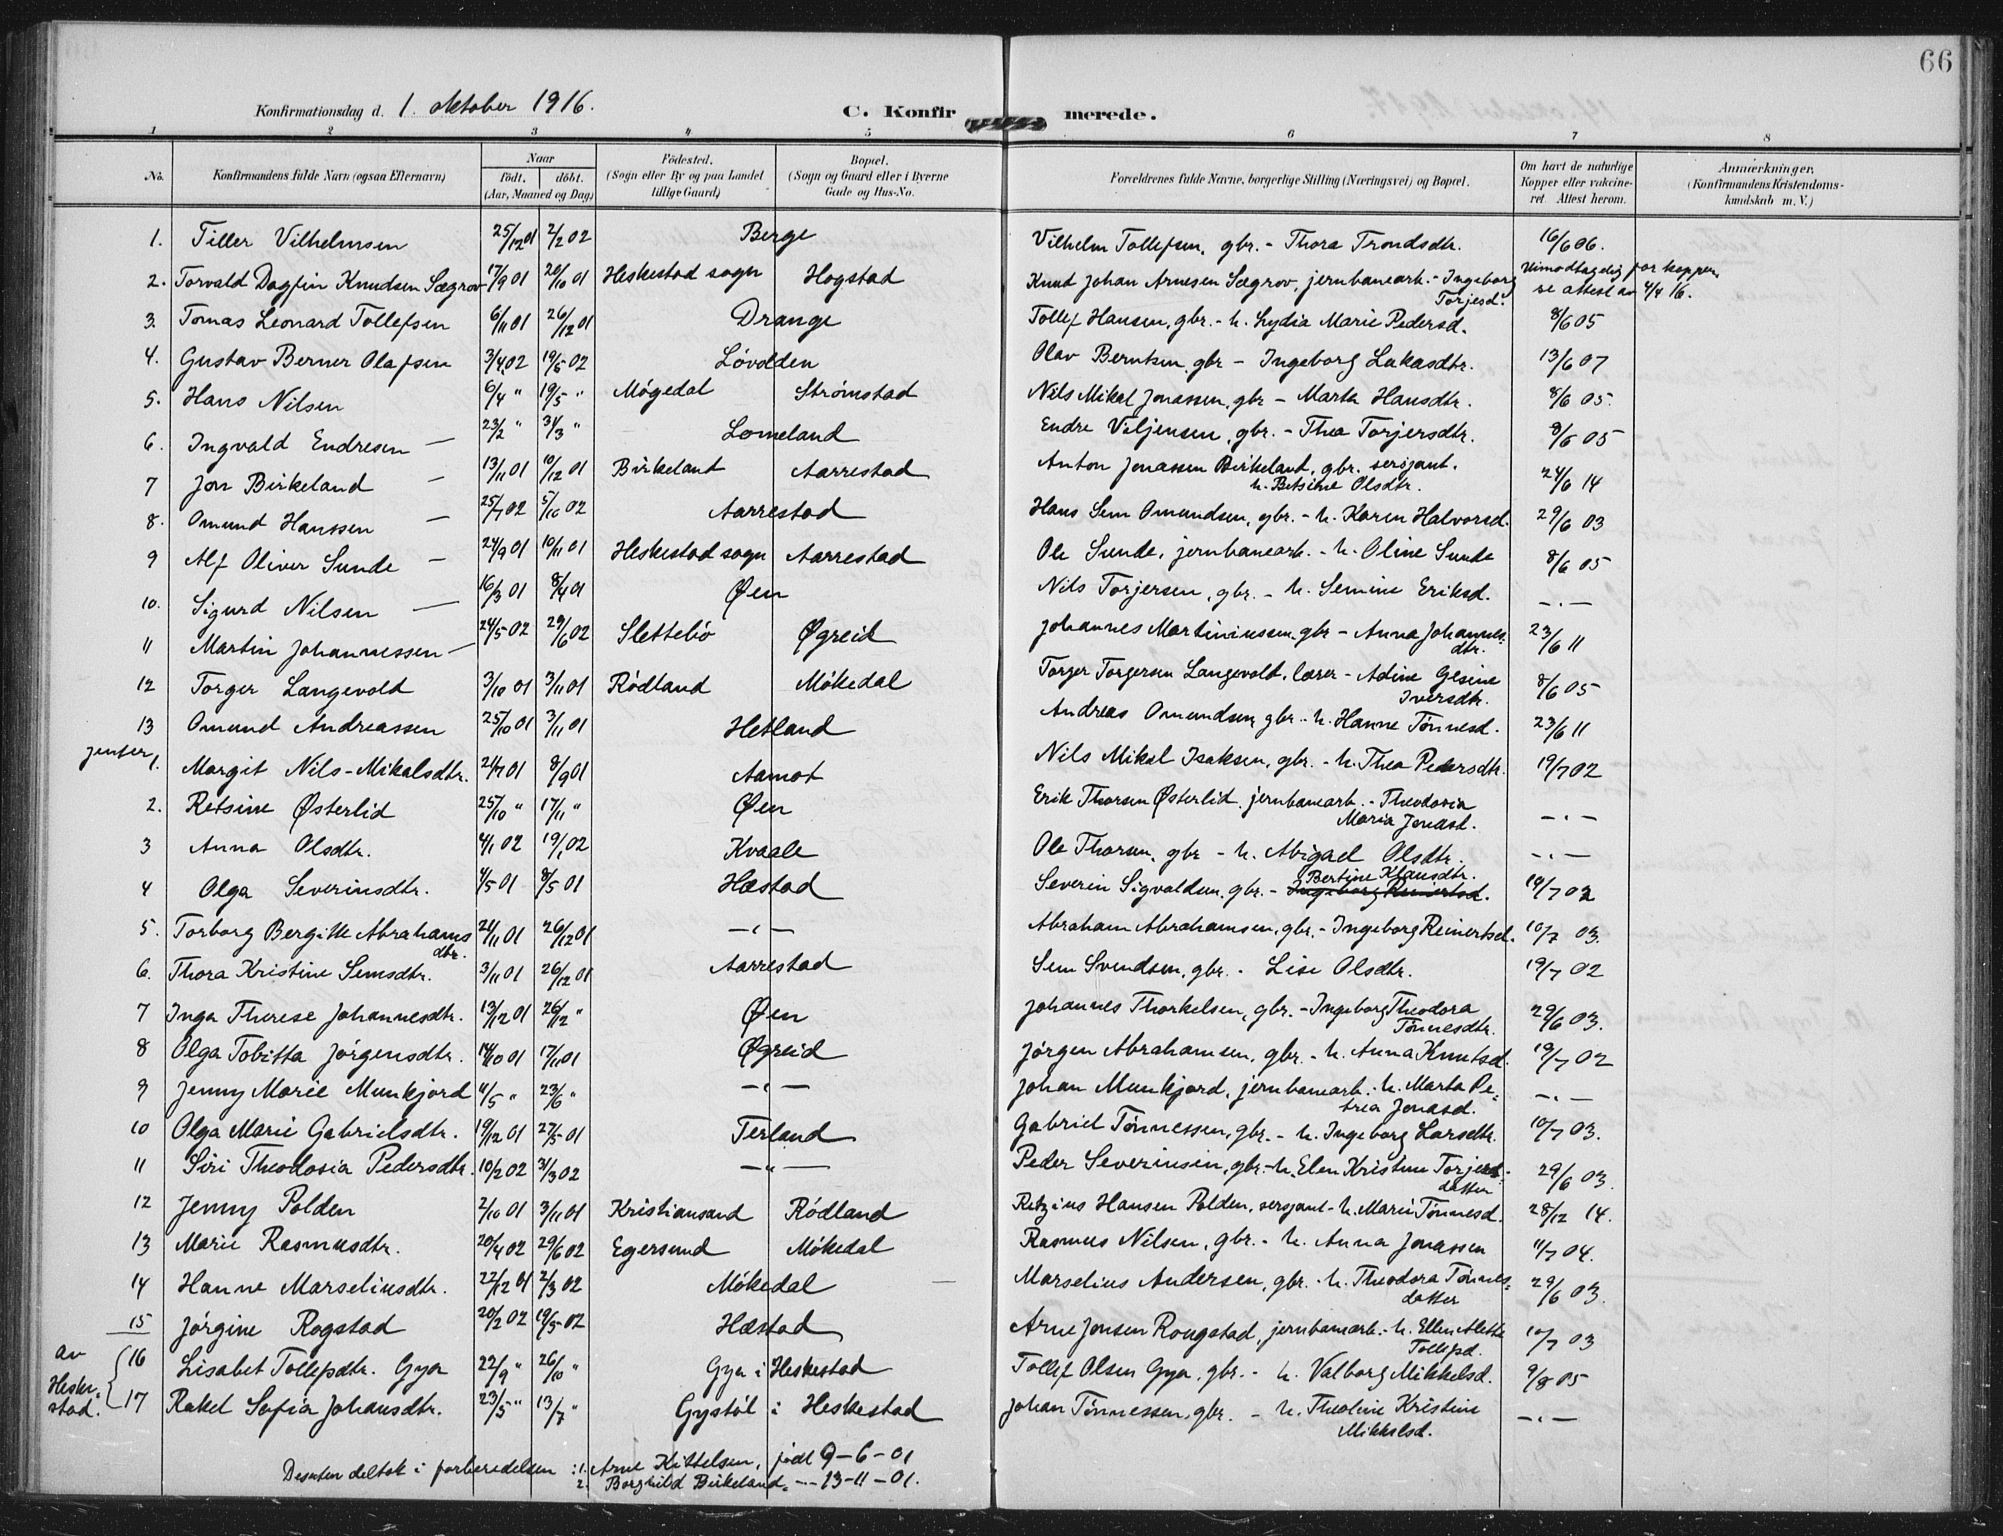 66
Konfirmationsdag d. 1. oktober 1916. C. Konfirmerede.
1 2 3 4 5 6 7 8
No. Konfirmandens fulde Navn (ogsaa Efternavn) Naar födt. döbt. (Aar, Maaned og Dag) Födested. (Sogn eller By og paa Landet tillige Gaard) Bopæl. (Sogn og Gaard eller i Byerne Gade og Hus-No. Forældrenes fulde Navne, borgerlige Stilling (Næringsvei) og Bopæl. Om havt de naturlige Kopper eller vakcineret. Attest herom. Anmærkninger. (Konfirmandens Kristendomskundskab m. V.)
1. Tiller Vilhelmsen 25/12 01 2/2 02 Berge Vilhelm Tollefsen, gbr. - Thora Trondsdtr. 16/6 06.
2. Torvald Dagfin Knudsen Sægrov 17/9 01 20/10 01 Heskestad sogn Hogstad Knud Johan Arnesen Sægrov, jernbanearb. - Ingeborg Torjesd. Uimodtagelig for kopper, se attest av 4/4 16.
3. Tomas Leonard Tollefsen 6/11 01 26/12 01 Drange Tollef Hansen, gbr. - h. Lydia Marie Pedersd. 8/6 05
4. Gustav Berner Olafsen 3/4 02 19/5 02 Løvolden Olav Berntsen, gbr - Ingeborg Lukasdtr. 13/6 07
5. Hans Nilsen 6/4 " 19/5 " Møgedal Strømstad Nils Mikal Jonassen, gbr - Marta Hansdtr. 8/6 05.
6. Ingvald Endresen — 23/2 " 31/3 " Lomeland Endre Viljensen, gbr. - Thea Torjersdtr. 8/6 05
7 Jon Birkeland — 13/11 01 10/12 01 Birkeland Aarrestad Anton Jonassen Birkeland, gbr. sersjant. h. Betsine Olsdtr. 24/6 14
8. Omund Hanssen — 25/7 02 5/10 02 Aarrestad Hans Sem Omundsen, gbr. - h. Karen Halvorsd. 29/6 03
9 Alf Oliver Sunde — 24/9 01 10/11 01 Heskestad sogn Aarrestad Ole Sunde, jernbanearb. - h. Oline Sunde 8/6 05
10. Sigurd Nilsen — 16/3 01 8/4 01 Øen Nils Torjersen, gbr. - h. Semine Eriksd. —.—
11 Martin Johannessen — 24/5 02 29/6 02 Slettebö Øgreid Johannes Martiniussen, gbr - Anna Johannesdtr. 23/6 11
12 Torger Langevold 3/10 01 3/11 01 Rødland Møkedal Torger Torgersen Langevold, lærer - Adine Gesine Iversdtr. 8/6 05
13 Omund Andreassen 25/10 01 3/11 01 Hetland Andreas Omundsen, gbr. - h. Hanne Tønnesd. 23/6 11
jenter 1. Margit Nils-Mikalsdtr. 24/7 01 8/9 01 Aamot Nils Mikal Isaksen, gbr. - h. Thea Pedersdtr. 19/7 02
2. Retsine Østerlid 25/10 " 17/11 " Øen Erik Thorsen Østerlid, jernbanearb. - Theodosia Maria Jonasd. —.—
3 Anna Olsdtr. 4/1 02 19/1 02 Kvaale Ole Thorsen, gbr - h. Abigael Olsdtr. —.—
4 Olga Severinsdtr. 4/5 01 8/5 01 Hæstad Severin Sigvaldsen, gbr. - Ingeborg Reinertsd. Bertine Klausdtr. 19/7 02
5. Torborg Bergitte Abrahamsdtr. 21/11 01 26/12 01 —.— Abraham Abrahamsen, gbr. - Ingeborg Reinertsd. 10/7 03.
6. Thora Kristine Semsdtr. 3/11 01 26/12 01 Aarrestad Sem Svendsen, gbr. - Lise Olsdtr. 19/7 02
7 Inga Therese Johannesdtr. 13/12 01 26/12 " Øen Johannes Thorkelsen, gbr. - Ingeborg Theodora Tönnesdtr. 29/6 03.
8 Olga Tobitta Jörgensdtr. 14/10 01 17/11 01 Øgreid Jørgen Abrahamsen, gbr. - h. Anna Knutsd. 19/7 02
9 Jenny Marie Munkjord 4/5 " 23/6 " —.— Johan Munkjord, jernbanearb. - h. Marta Petrea Jonasd. —.—
10 Olga Marie Gabrielsdtr. 19/12 01 27/5 01 Terland Gabriel Tönnessen, gbr. - h. Ingeborg Larsdtr. 10/7 03.
11 Siri Theodosia Pedersdtr. 10/2 02 31/3 02 —"— Peder Severinsen, gbr. - h. Elen Kristine Torjersdatter 29/6 03.
12 Jenny Polden 2/10 01 3/11 01 Kristiansand Rødland Retzius Hansen Polden, sersjant - h. Marie Tönnesd. 28/12 14.
13 Marie Rasmusdtr. 20/4 02 29/6 02 Egersund Møkedal Rasmus Nilsen, gbr. - h. Anna Jonassen 11/7 04.
14 Hanne Marseliusdtr. 22/12 01 2/3 02 Møkedal Marselius Andersen, gbr. - h. Theodora Tönnesdatter 29/6 03.
15 Jørgine Rogstad 20/2 02 19/5 02 Hæstad Arne Jonsen Rougstad, jernbanearb. - h. Ellen Alette Tollefsd. 10/7 03
av Heskestad. 16 Lisabet Tollefsdtr. Gya 22/9 " 26/10 " Gya i Heskestad Tollef Olsen Gya, gbr. - h. Valborg Mikkelsd. 9/8 05
17 Rakel Sofia Johansdtr. 23/5 " 13/7 " Gystöl i Heskestad Johan Tönnessen, gbr. - h. Theoline Kristine Mikkelsd. —.—
Desuten deltok i forberedelsen : 1. Arne Kittelsen, født 9-6-01
2. Borghild Birkeland. — 13-11-01.